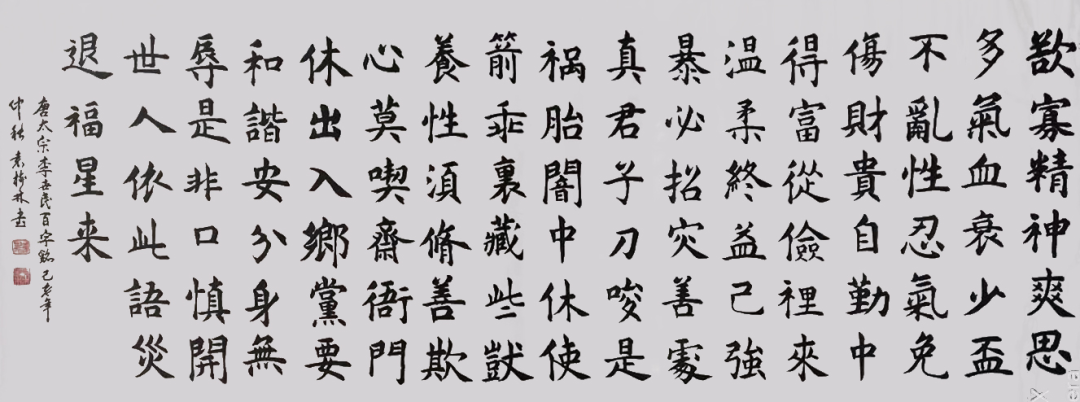 欲寡精神爽思
多氣血衰少盃
不亂性忍氣免
傷財貴自勤中
得富從儉裡來
温柔終益己強
暴必招灾善處
真君子刀唆是
祸胎闇中休使
箭乖裏藏些獃
養性須脩善欺
心莫喫齋衙門
休出入鄉黨要
和諧安分身無
辱是非口慎開
世人依此語災
退福星来
唐太宗李世民百字銘己亥年
仲秋袁 林書